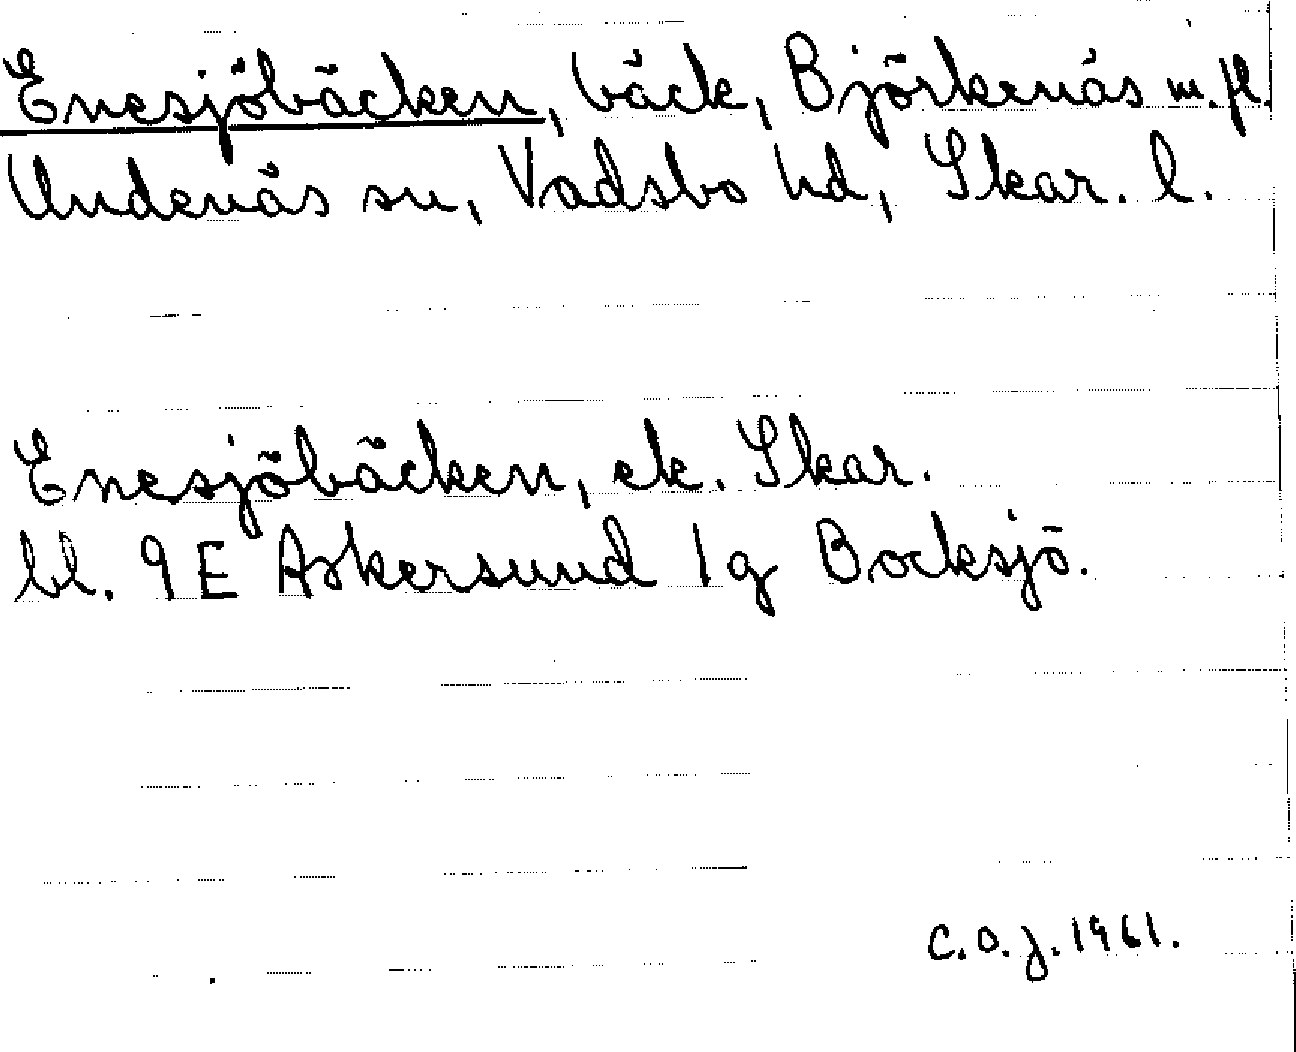 Enesjöbäcken, bäck, Björkenäs m. fl.
Undenäs sn, Vadsbo hd, Skar. l.
Enesjöbäcken, ek. Skar.
bl. 9E Askersund 1g Bocksjö.
C.O.J. 1961.